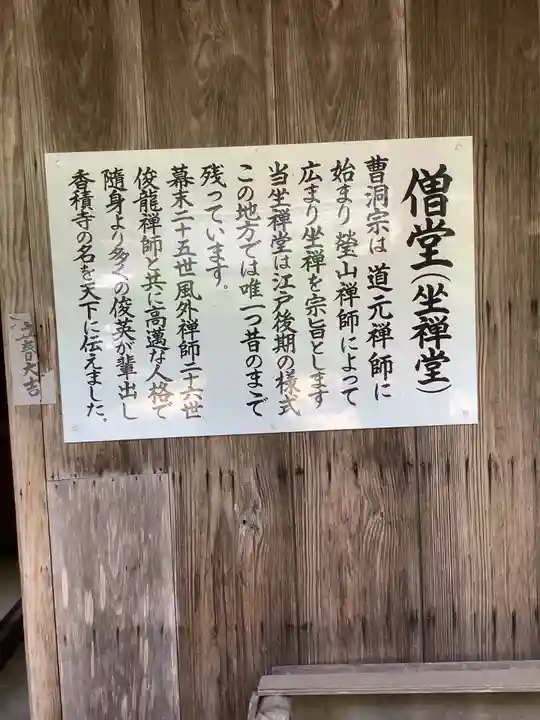 僧堂(坐禅堂)
曹洞宗は道元禅師に
始まり瑩山禅師によって
広まり坐禅を宗旨とします
当坐禅堂は江戸後期の様式
この地方では唯一つ昔のままで
残っています。
幕末二十五世風外禅師二十六世
俊龍禅師と共に高邁な人格で
随身より多くの俊英が輩出し
香積寺の名を天下に伝えました。
立春大吉